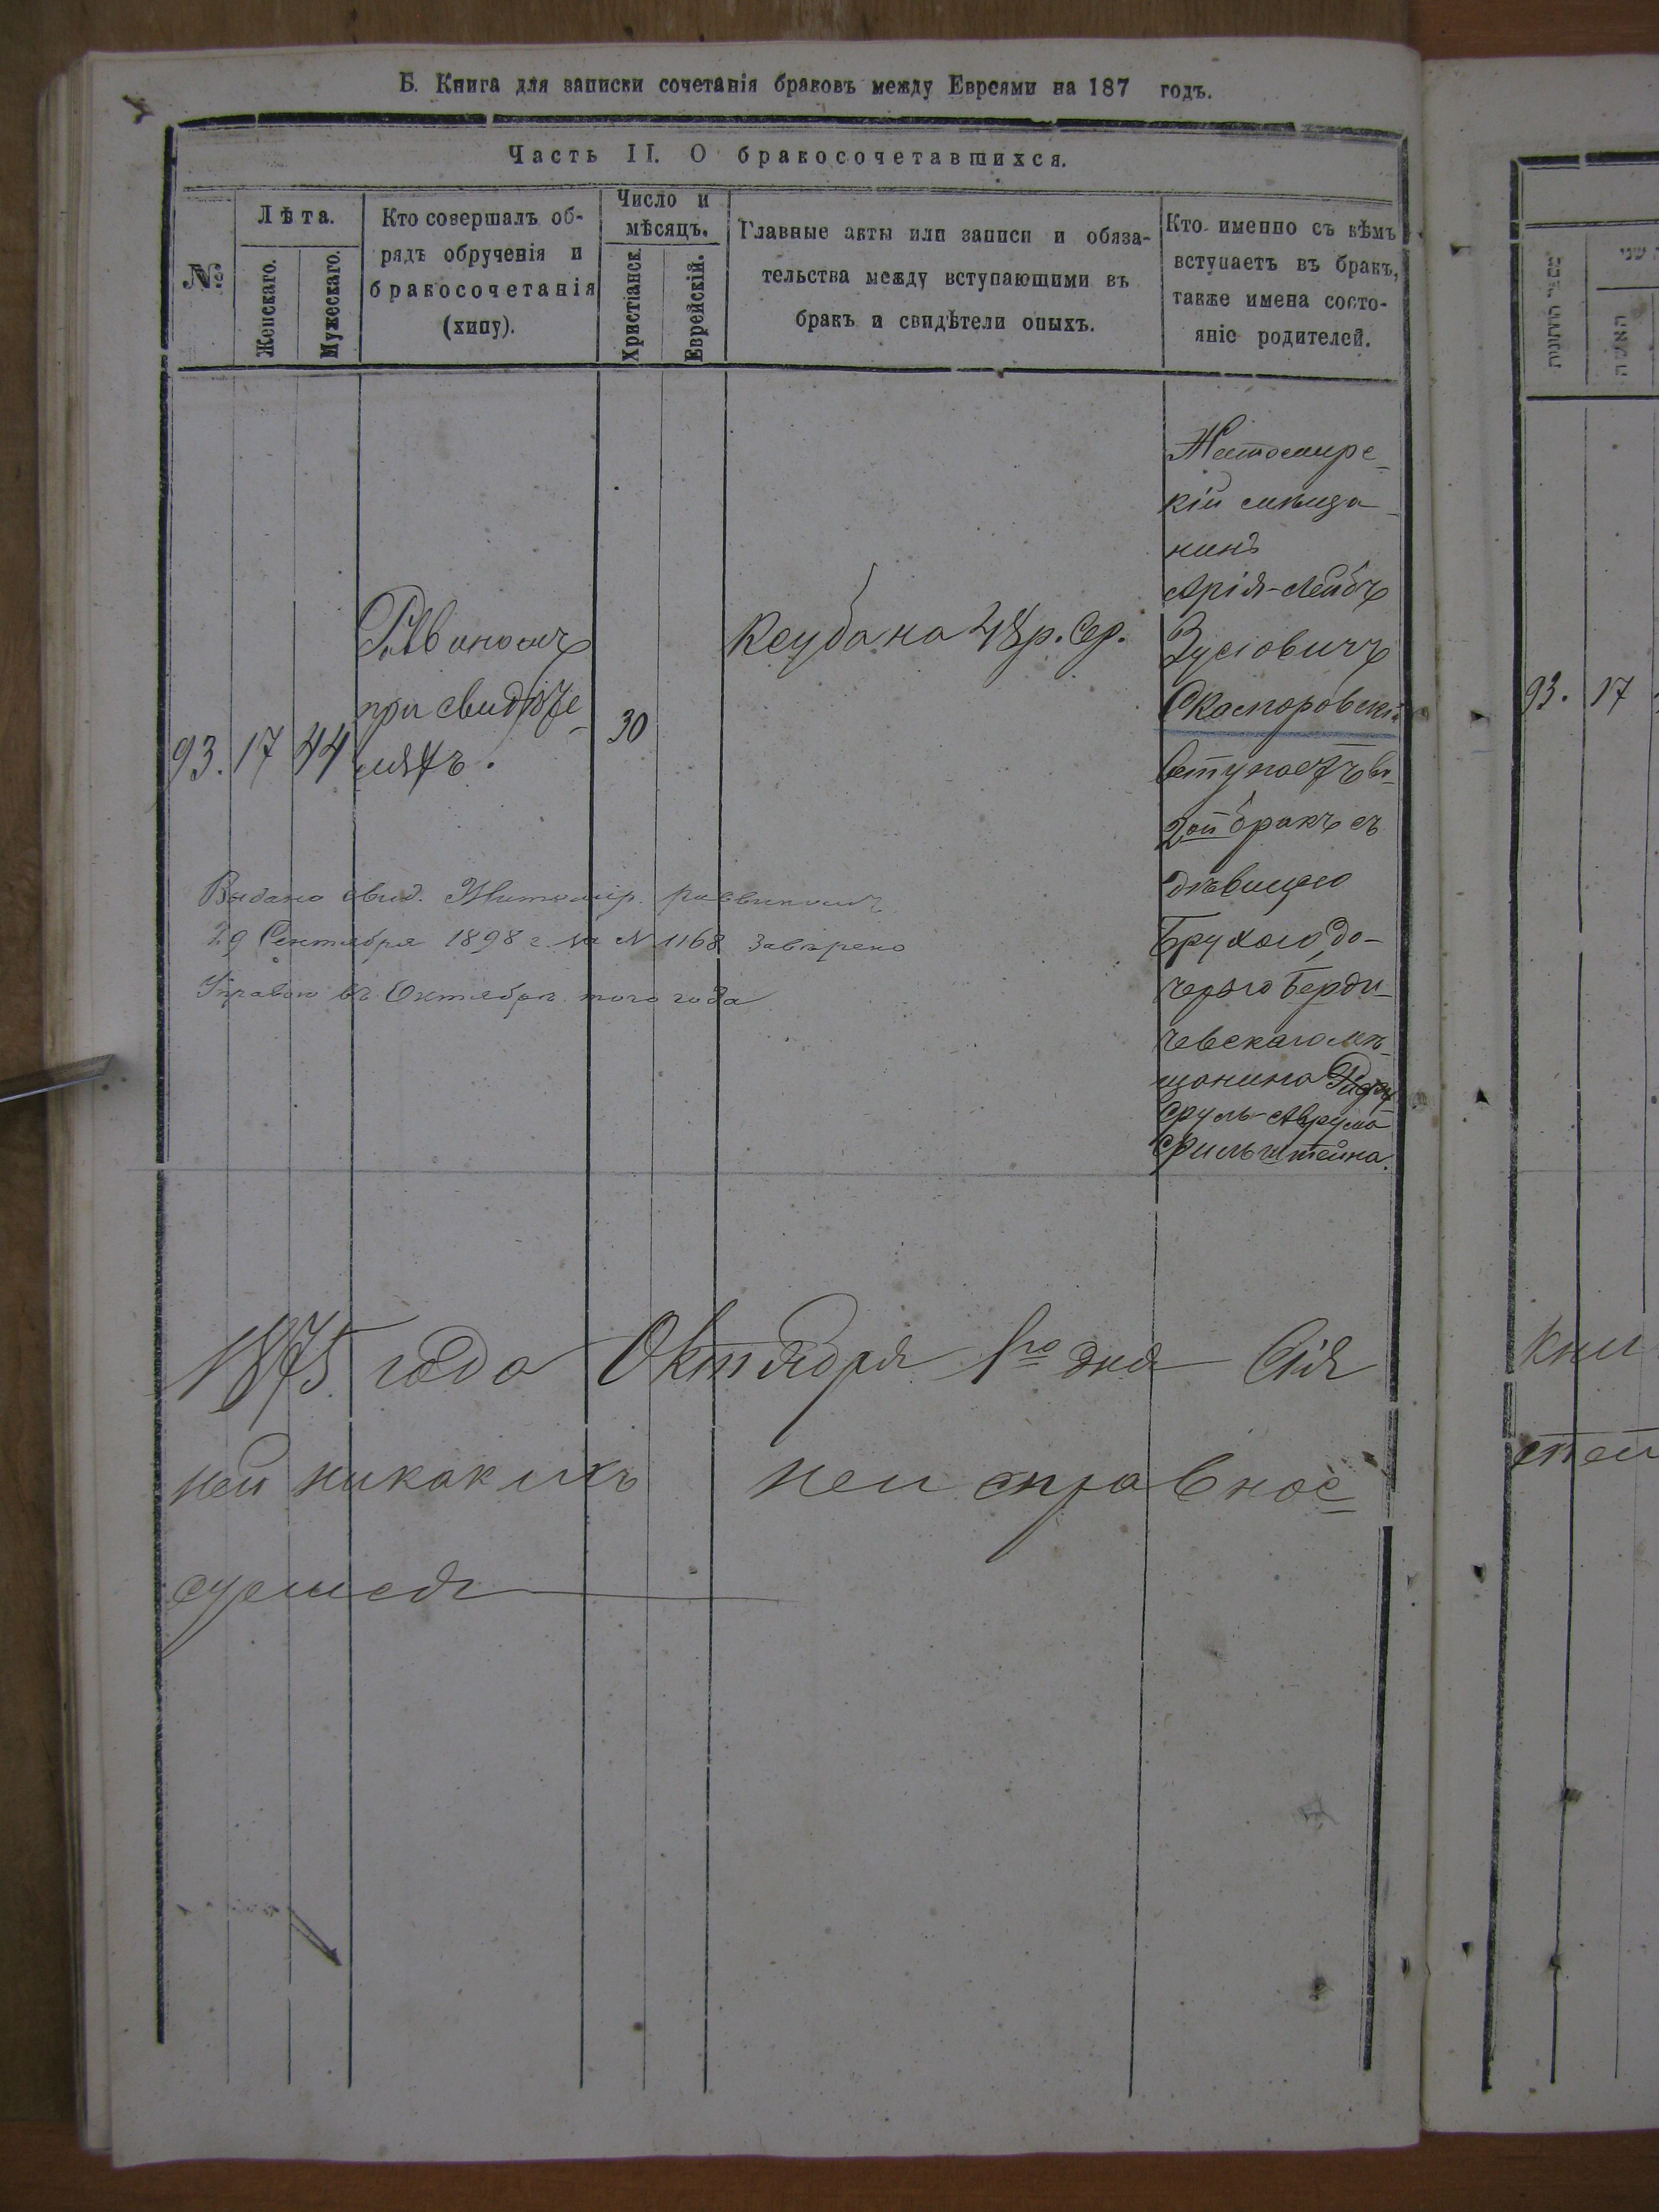 Б. Книга для записки сочетанія браковъ между Евреями на 187 годъ.
Часть II. О бракосочетавшихся.
№
Лѣта.
Женскаго.
Мужескаго.
Кто совершалъ об-
рядъ обрученія и
бракосочетанія
(хипу).
Число и
мѣсяцъ.
Христіанск.
Еврейскій.
Главные акты или записи и обяза-
тельства между вступающими въ
бракъ и свидѣтели оныхъ.
Кто именно съ кѣмъ
вступаетъ въ бракъ,
также имена состо-
яніе родителей.
93.
17
44
Раввиномъ
при свидѣте-
ляхъ.
30
Ксуба на 48 р. сер.
Житомирс-
кій мѣща-
нинъ
Арія-Лейбъ
Зусіовичъ
Скоморовскій
вступаетъ во
2ой бракъ съ
дѣвицею
Брухою, до-
черью Берди-
чевскаго мѣ-
щанина
Сруль-Аврума
Фильштейна.
Выдано свид. Житомір. раввиномъ
29 Сентября 1898 г. за N 1168 завѣрено
Управою въ Октябрѣ того года
1875 года Октября 1го дня Сія
ней никакихъ неисправнос-
93. 17
кни
מספר החתונות
האשה
שני